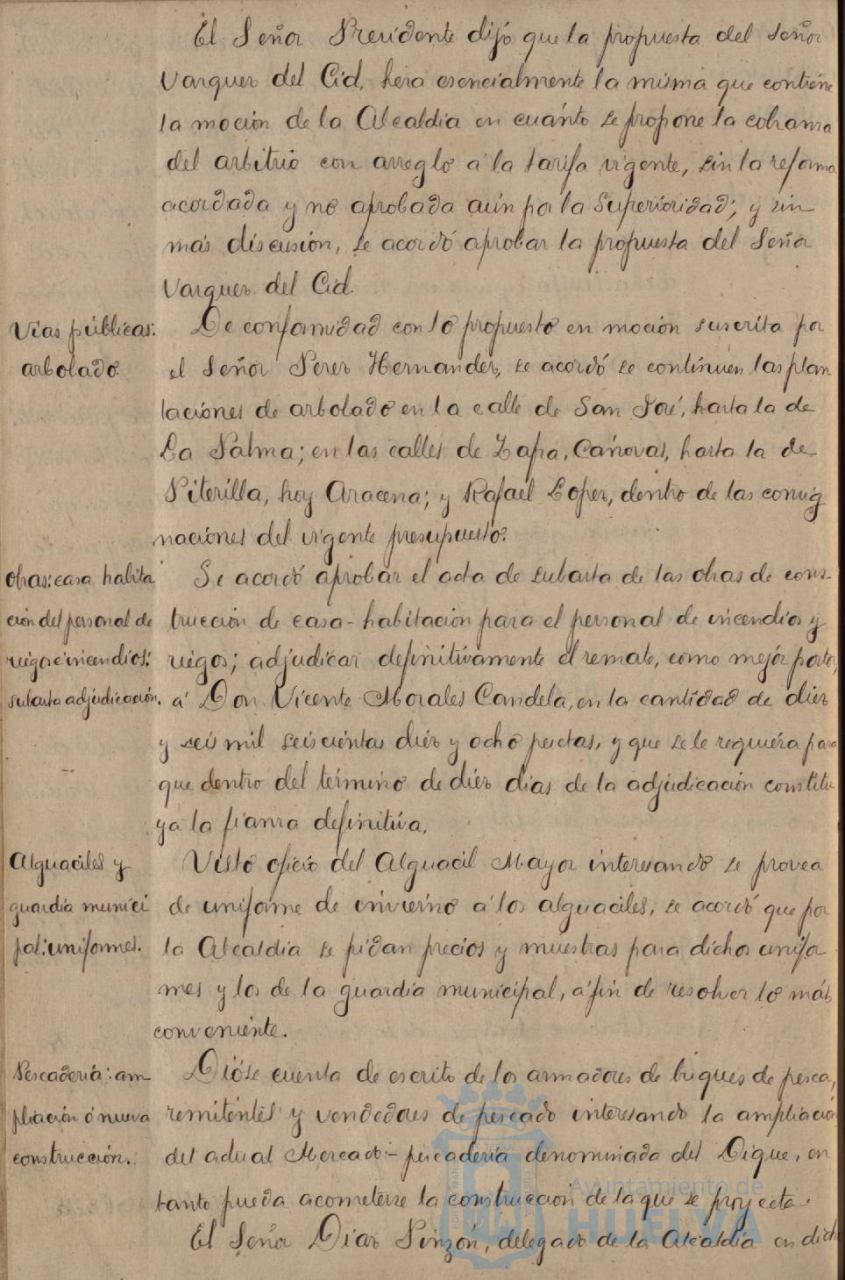 El Señor Presidente dijo que la propuesta del Señor
Varquer del Cid, hera esencialmente la misma que contiene
la moción de la Alcaldía en cuánto se propone la cobranza
del arbitrio con arreglo á la tarifa vigente, sin la reforma
acordada y no aprobada aún por la Superioridad; y sin
más discusión, se acordó aprobar la propuesta del Señor
Varquer del Cid.
Vías públicas:
arbolado.
De conformidad con lo propuesto en moción suscrita por
el Señor Perez Hernandez, se acordó se continuen las plan
taciones de arbolado en la calle de San José, hasta la de
La Palma; en las calles de Zafra, Cánovas, hasta la de
Piterilla, hoy Aracena; y Rafael Lopez, dentro de las consig
naciones del vigente presupuesto.
Obras: casa habita
ción del personal de
riegos e incendios:
subasta adjudicación.
Se acordó aprobar el acta de subasta de las obras de cons-
trucción de casa-habitación para el personal de incendios y
riegos; adjudicar definitivamente el remate, como mejor postor,
á Don Vicente Morales Candela, en la cantidad de diez
y seis mil seiscientas diez y ocho pesetas, y que se le requiera para
que dentro del término de diez días de la adjudicación constitu
ya la fianza definitiva.
Alguaciles y
guardia munici
pal: uniformes.
Visto oficio del Alguacil Mayor interesando se provea
de uniforme de invierno á los alguaciles, se acordó que por
la Alcaldía se pidan precios y muestras para dichos unifor
mes y los de la guardia municipal, á fin de resolver lo más
conveniente.
Pescadería: am
pliación ó nueva
construcción.
Dióse cuenta de escrito de los armadores de buques de pesca,
remitentes y vendedores de pescado interesando la ampliación
del actual Mercado-pescadería denominada del Dique, en
tanto pueda acometerse la construcción de la que se proyecta.
El Señor Díaz Pinzón, delegado de la Alcaldía en dich
Ayuntamiento de
HUELVA